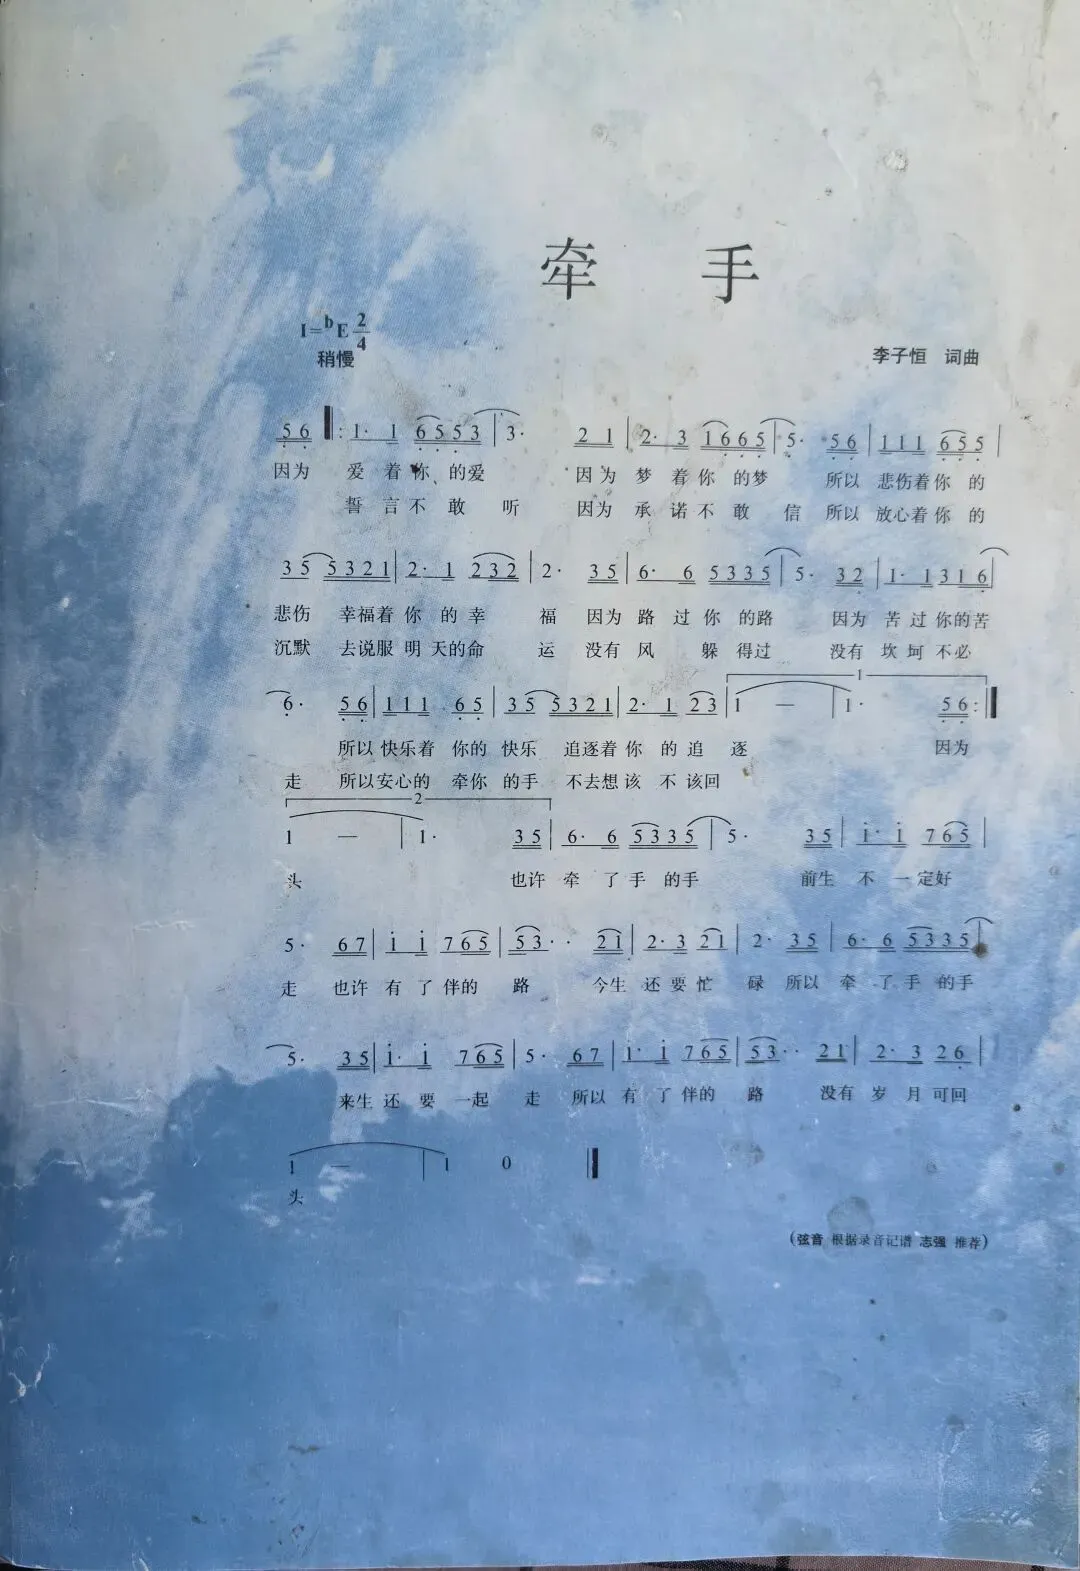 牵 手
1=bE 2/4
稍慢
李子恒 词曲
5 6 ‖: 1· 1 6 5 5 3 | 3· 2 1 | 2· 3 1 6 6 5 | 5· 5 6 | 1 1 1 6 5 5 |
因为 爱 着 你 的爱 因为 梦 着 你 的梦 所以 悲伤着 你 的
誓 言 不 敢 听 因为 承 诺 不 敢 信 所以 放心着 你 的
3 5 5 3 2 1 | 2· 1 2 3 2 | 2· 3 5 | 6· 6 5 3 3 5 | 5· 3 2 | 1· 1 3 1 6 |
悲伤 幸福着 你 的 幸 福 因为 路 过 你 的路 因为 苦 过 你的苦
沉默 去说服 明 天的命 运 没有 风 躲 得过 没有 坎 坷 不必
1
6· 5 6 | 1 1 1 6 5 | 3 5 5 3 2 1 | 2· 1 2 3 | 1 — | 1· 5 6 :‖
所以 快乐着 你的 快乐 追逐着 你 的 追 逐 因为
走 所以安心的 牵你 的手 不去想 该 不 该回
2
1 — | 1· 3 5 | 6· 6 5 3 3 5 | 5· 3 5 | i· i 7 6 5 |
头 也许 牵 了 手 的手 前生 不 一定好
5· 6 7 | i i 7 6 5 | 5 3·· 2 1 | 2· 3 2 1 | 2· 3 5 | 6· 6 5 3 3 5 |
走 也许 有 了 伴的 路 今生 还 要 忙 碌 所以 牵 了 手 的手
5· 3 5 | i· i 7 6 5 | 5· 6 7 | i· i 7 6 5 | 5 3·· 2 1 | 2· 3 2 6 |
来生 还 要 一起 走 所以 有 了 伴的 路 没有 岁 月 可回
1 — | 1 0 ‖
头
(弦音 根据录音记谱 志强 推荐)